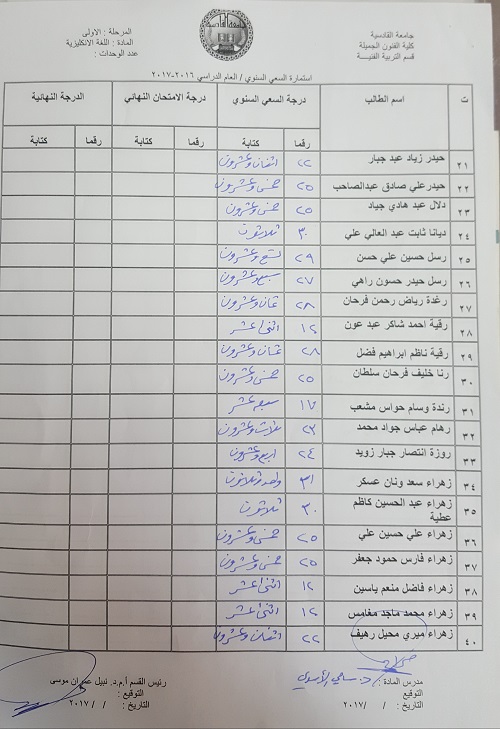 جامعة القادسية
كلية الفنون الجميلة
قسم التربية الفنية
المرحلة : الاولى
المادة : اللغة الانكليزية
عدد الوحدات :
استمارة السعي السنوي / العام الدراسي ٢٠١٦-٢٠١٧
ت اسم الطالب درجة السعي السنوي درجة الامتحان النهائي الدرجة النهائية
رقما كتابة رقما كتابة رقما كتابة
٢١ حيدر زياد عبد جبار ٢٢ اثنان وعشرون
٢٢ حيدر علي صادق عبدالصاحب ٢٥ خمس وعشرون
٢٣ دلال عبد هادي جياد ٢٥ خمس وعشرون
٢٤ ديانا ثابت عبد العالي علي ٣٠ ثلاثون
٢٥ رسل حسين علي حسن ٢٩ تسع وعشرون
٢٦ رسل حيدر حسون راهي ٢٧ سبع وعشرون
٢٧ رغدة رياض رحمن فرحان ٢٨ ثمان وعشرون
٢٨ رقية احمد شاكر عبد عون ١٢ اثنا عشر
٢٩ رقية ناظم ابراهيم فضل ٢٨ ثمان وعشرون
٣٠ رنا خليف فرحان سلطان ٢٥ خمس وعشرون
٣١ رندة وسام حواس مشعب ١٧ سبعة عشر
٣٢ رهام عباس جواد محمد ٢٣ ثلاث وعشرون
٣٣ روزة انتصار جبار زويد ٢٤ اربع وعشرون
٣٤ زهراء سعد ونان عسكر ٣١ واحد وثلاثون
٣٥ زهراء عبد الحسين كاظم عطية ٣٠ ثلاثون
٣٦ زهراء علي حسين علي ٢٥ خمس وعشرون
٣٧ زهراء فارس حمود جعفر ٢٥ خمس وعشرون
٣٨ زهراء فاضل منعم ياسين ١٢ اثنا عشر
٣٩ زهراء محمد ماجد مغامس ١٢ اثنا عشر
٤٠ زهراء ميري محيل رهيف ٢٢ اثنان وعشرون
مدرس المادة : د. سامي الأسدي
التوقيع :
التاريخ : / / ٢٠١٧
رئيس القسم أ.م.د. نبيل عمران موسى
التوقيع :
التاريخ : / / ٢٠١٧